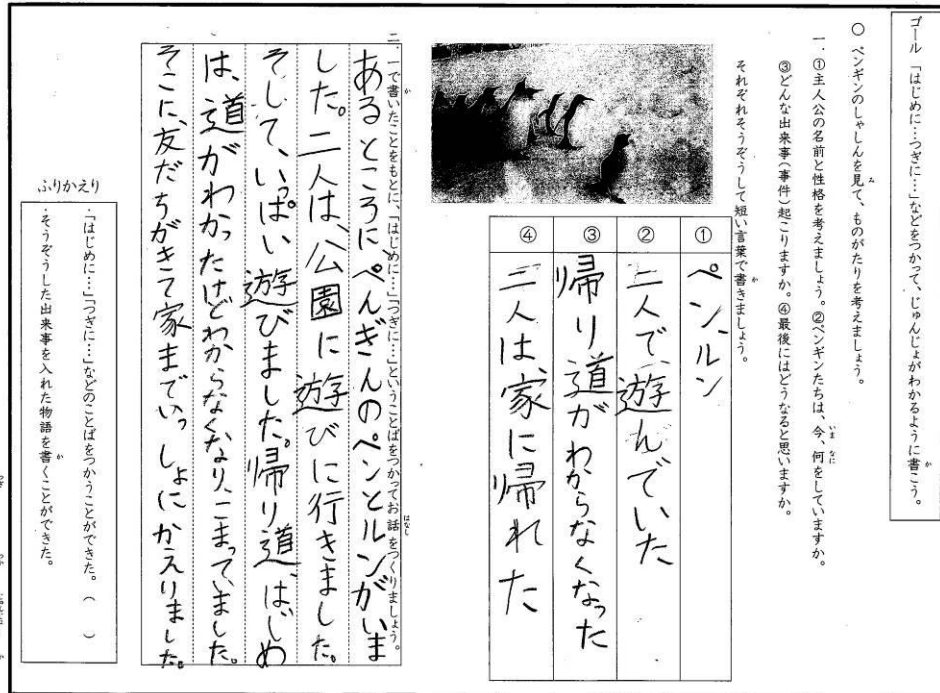 ゴール 「はじめに…つぎに…」などをつかって、じゅんじょがわかるように書こう。
○ ペンギンのしゃしんを見て、ものがたりを考えましょう。
一．①主人公の名前と性格を考えましょう。②ペンギンたちは、今、何をしていますか。
③どんな出来事(事件)起こりますか。④最後にはどうなると思いますか。
それぞれそうぞうして短い言葉で書きましょう。
① ペン、ルン
② 二人で、遊んでいた
③ 帰り道がわからなくなった
④ 二人は、家に帰れた
二．一で書いたことをもとに、「はじめに…」「つぎに…」ということばをつかってお話をつくりましょう。
あるところに、ぺんぎんのペンとルンがいま
した。二人は、公園に遊びに行きました。
そして、いっぱい遊びました。帰り道、はじめ
は、道がわかったけどわからなくなり、こまっていました。
そこに、友だちがきて家までいっしょにかえりました。
ふりかえり
・「はじめに…」「つぎに…」などのことばをつかうことができた。（ ）
・そうぞうした出来事を入れた物語を書くことができた。